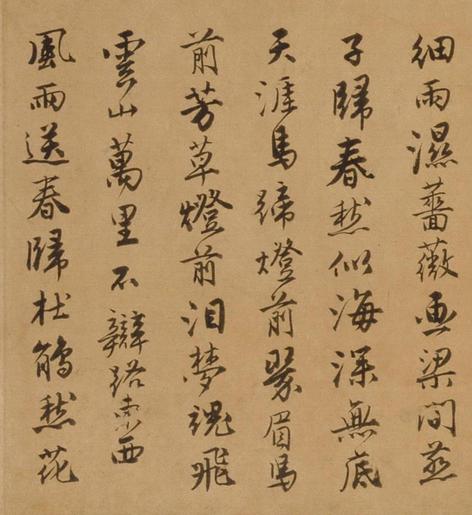 細雨濕薔薇画梁間燕
子歸春愁似海深無底
天涯馬蹄燈前翠眉馬
前芳草燈前泪夢魂飛
雲山萬里不辯路東西
風雨送春歸杜鵑愁花